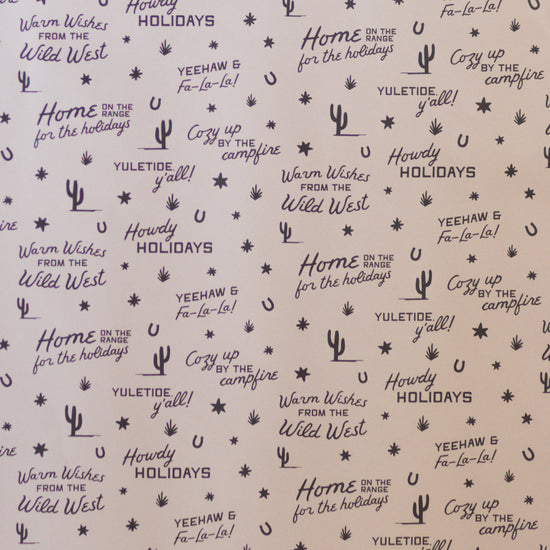 Howdy
HOLIDAYS
YEEHAW &
Fa-La-La!
Warm Wishes
FROM THE
Wild West
Home ON THE RANGE
for the holidays
Cozy up
BY THE
campfire
YEEHAW &
Fa-La-La!
YULETIDE,
y'all!
Home ON THE RANGE
for the holidays
Cozy up
BY THE
campfire
YULETIDE,
y'all!
Warm Wishes
FROM THE
Wild West
Howdy
HOLIDAYS
fire
Howdy
HOLIDAYS
YEEHAW &
Fa-La-La!
Warm Wishes
FROM THE
Wild West
Home ON THE RANGE
for the holidays
Cozy up
BY THE
campfire
YEEHAW &
Fa-La-La!
YULETIDE,
y'all!
Home ON THE RANGE
for the holidays
Cozy up
BY THE
campfire
YULETIDE,
y'all!
Warm Wishes
FROM THE
Wild West
Howdy
HOLIDAYS
fire
Howdy
HOLIDAYS
YEEHAW &
Fa-La-La!
Warm Wishes
FROM THE
Wild West
Home ON THE RANGE
for the holidays
Cozy up
BY THE
campfire
YEEHAW &
Fa-La-La!
YULETIDE,
y'all!